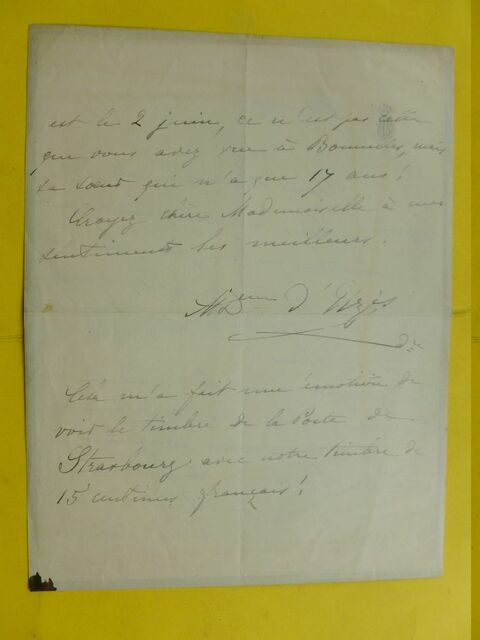 est le 2 juin, ce n'est pas celle
que vous avez vue à Bonnelles, mais
sa sœur qui n'a que 17 ans !
Croyez chère Mademoiselle à mes
sentiments les meilleurs.
d'Uzès
Cela m'a fait une émotion de
voir le timbre de la Poste de
Strasbourg avec notre timbre de
15 centimes français !